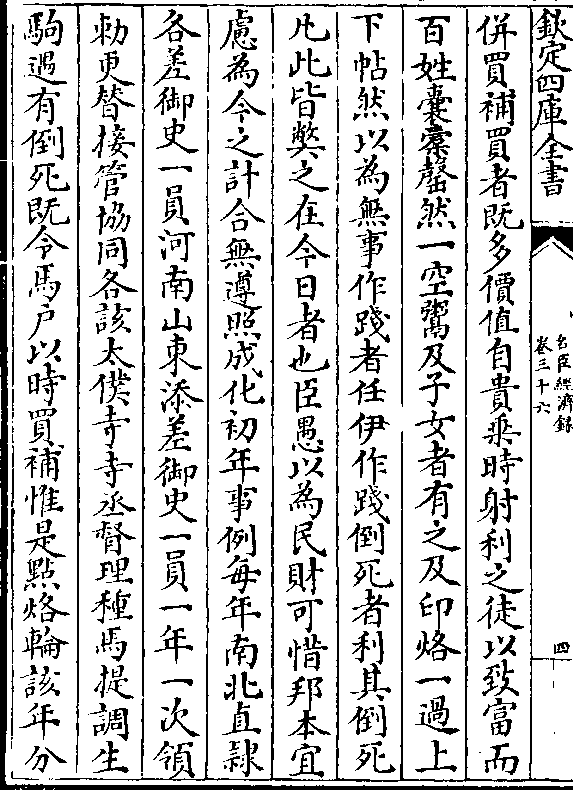 欽定四庫全書
名臣經濟錄
卷三十六
四
併買補買者既多價值自貴乘時射利之徒以致富而
百姓囊橐罄然一空鬻及子女者有之及印烙一過上
下帖然以為無事作踐者任伊作踐倒死者利其倒死
凡此皆弊之在今日者也臣愚以為民財可惜邦本宜
慮為今之計合無遵照成化初年事例每年南北直隸
各差御史一員河南山東添差御史一員一年一次領
勅更替接管協同各該太僕寺寺丞督理種馬提調生
駒遇有倒死既令馬戶以時買補惟是點烙輪該年分